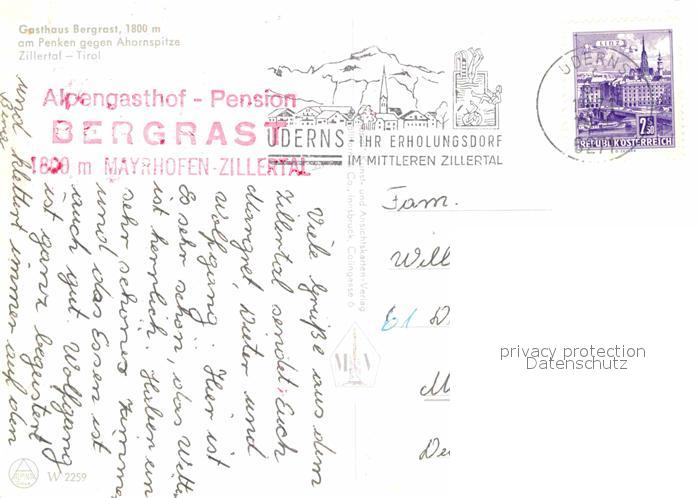 Gasthaus Bergrast, 1800 m
am Penken gegen Ahornspitze
Zillertal – Tirol
Alpengasthof - Pension
BERGRAST
1800 m MAYRHOFEN-ZILLERTAL
UDERNS IHR ERHOLUNGSDORF
IM MITTLEREN ZILLERTAL
UDERNS
LINZ
2.50
REPUBLIK ÖSTERREICH
Fam.
Will
61 D
M
De
privacy protection
Datenschutz
Viele Grüße aus dem
Zillertal sendet Euch
Margret, Dieter und
Wolfgang. Hier ist
es sehr schön, das Wetter
ist herrlich. Haben ein
sehr schönes Zimmer
und das Essen ist
auch gut. Wolfgang
ist ganz begeistert
und klettert immer auf den
W 2259